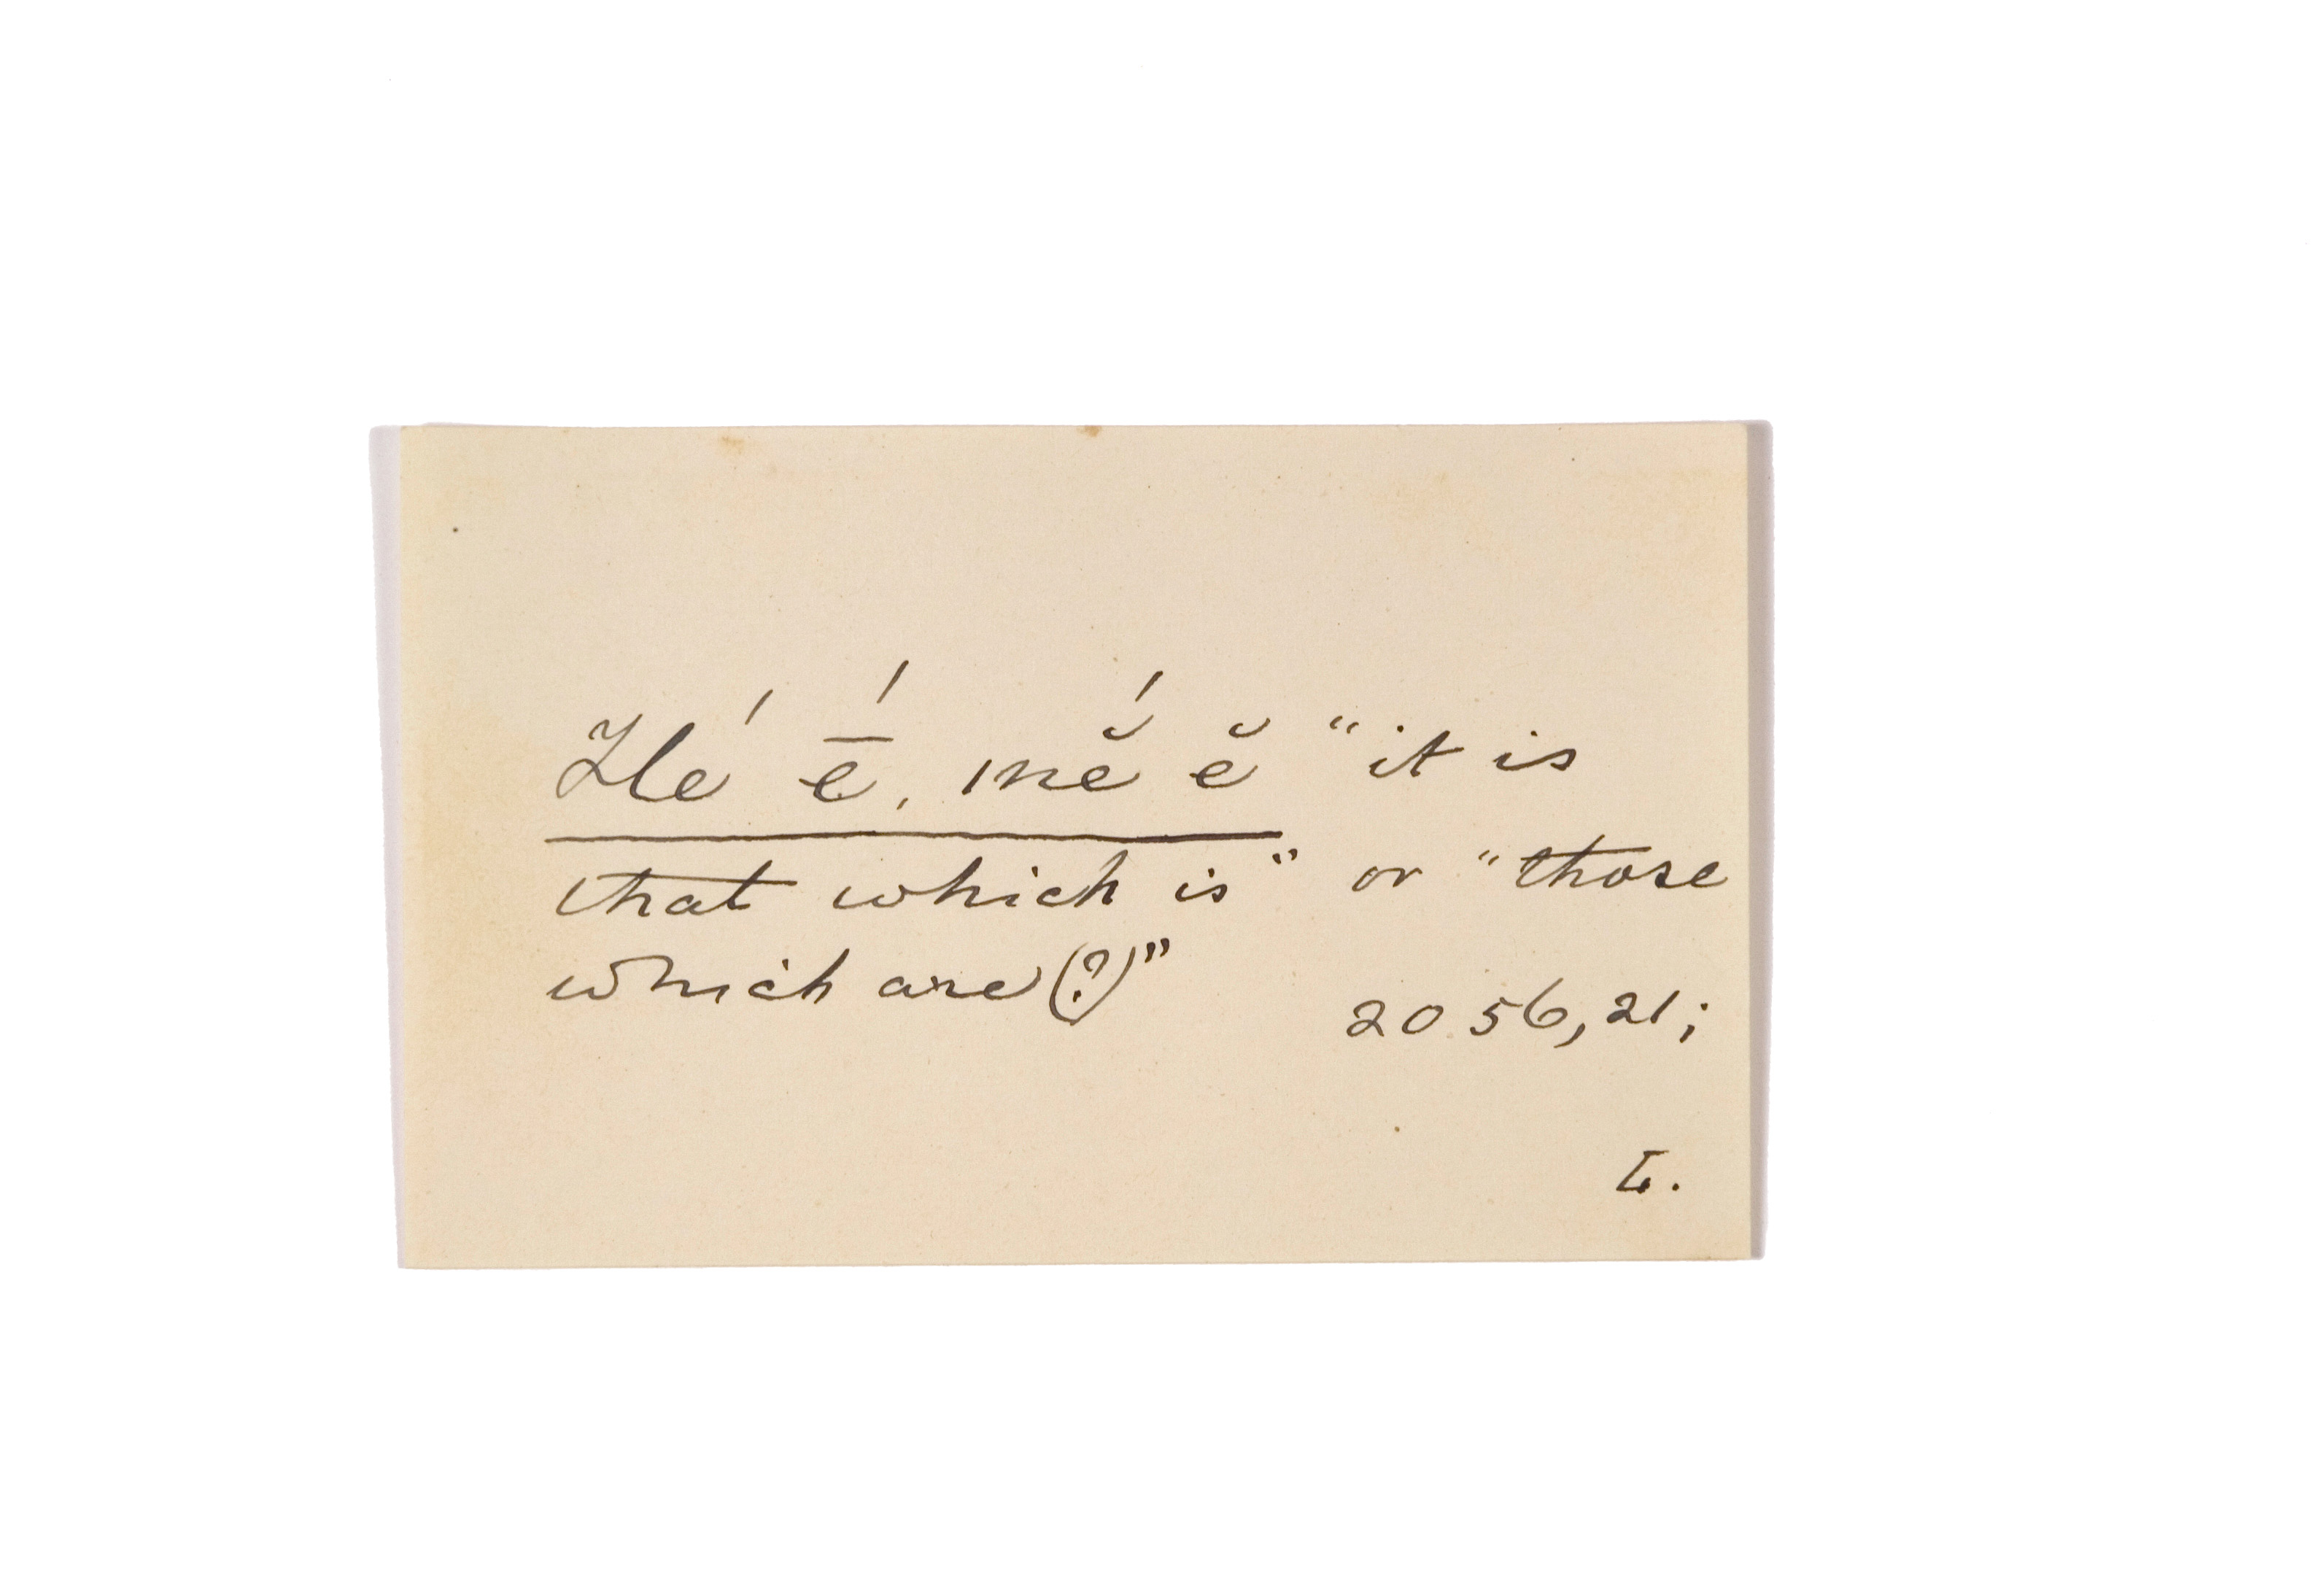 Hé ḗ, mĕ́ ĕ "it is
that which is" or "those
which are (?)"
2056, 21;
L.